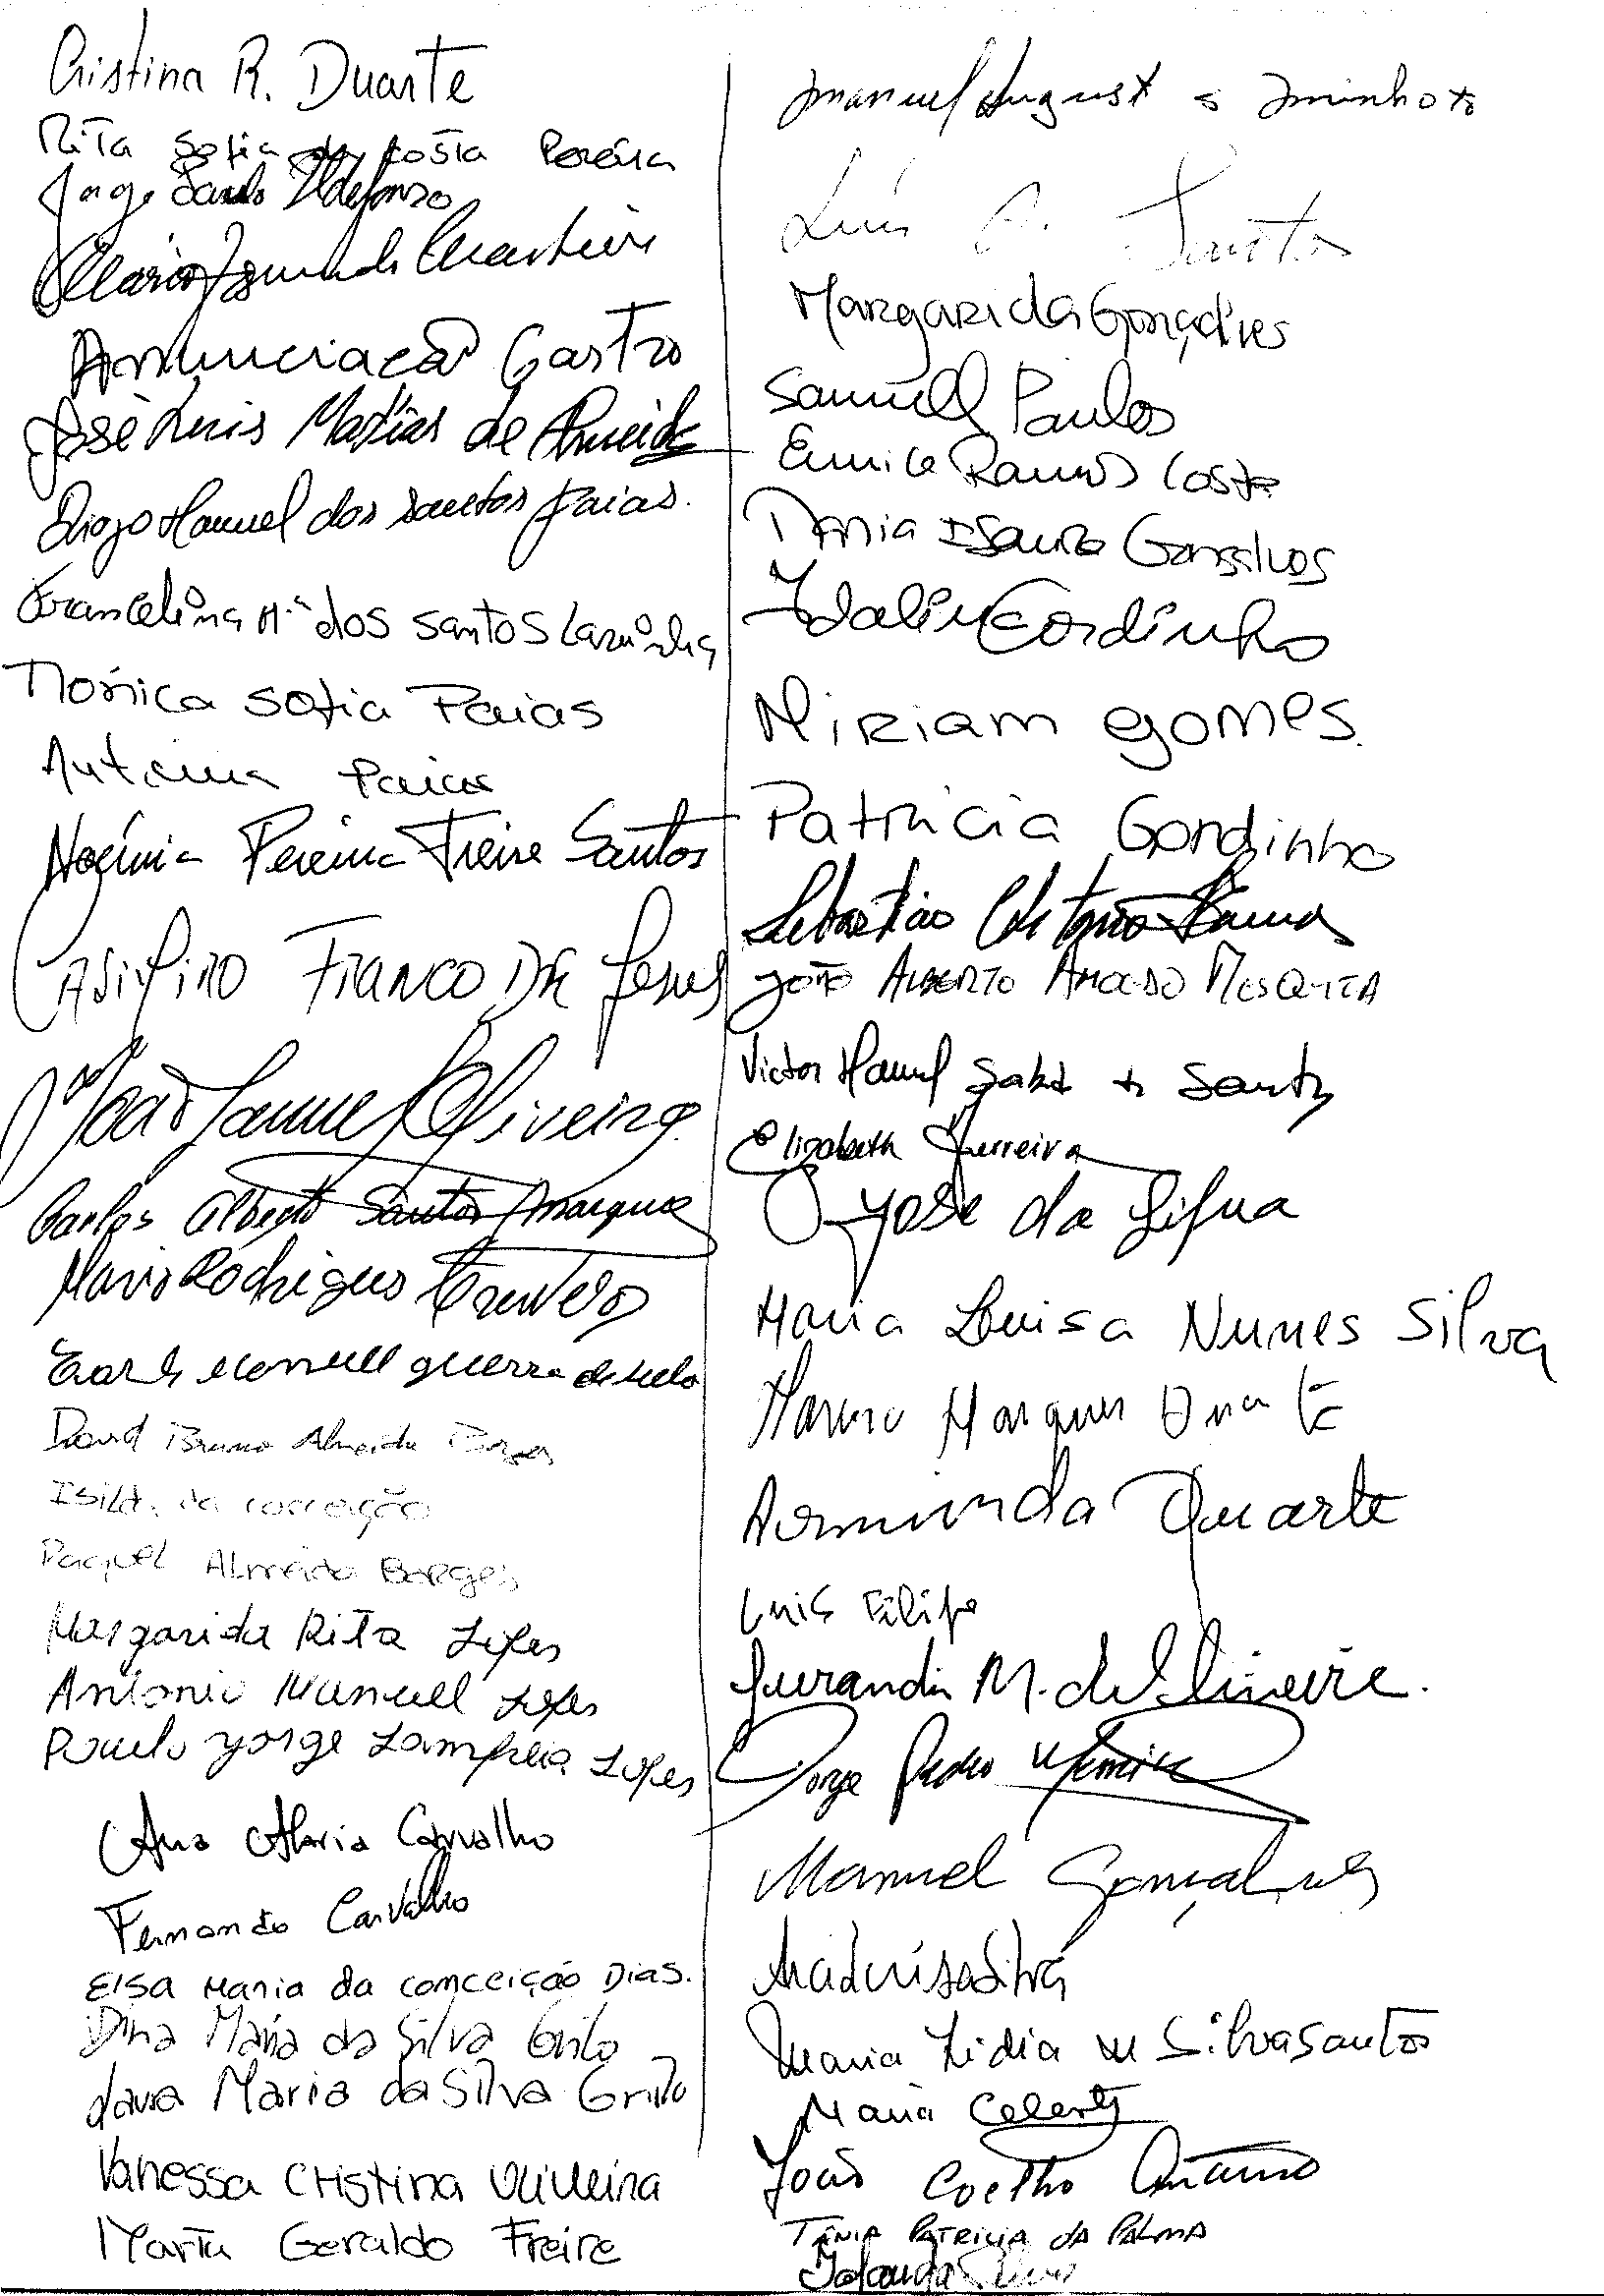 Cristina R. Duarte
Rita Sofia da Costa Pereira
Jorge Paulo Ildefonso
Maria Martins
Annunciação Castro
José Luis Matias de Almeida
Diogo Manuel dos Santos Paias.
Francelina Mª dos Santos Laninha
Mónica Sofia Paias
Antonia Paias
Noémia Pereira Freire Santos
Franco De Jesus
João Manuel Oliveira.
Carlos Alberto Santos Marques
Mario Rodrigues
Carlos Manuel guerra de Melo
David Bruno Almeida Borges
Isilda da conceição
Raquel Almeida Borges
Margarida Rita Lopes
António Manuel Lopes
Paulo Jorge Lampreia Lopes
Ana Maria Carvalho
Fernando Carvalho
Elsa Maria da Conceição Dias.
Dina Maria da Silva Grilo
Laura Maria da Silva Grilo
Vanessa Cristina Oliveira
Marta Geraldo Freire
Manuel Augusto Minhoto
Luís A. Santos
Margarida Gonçalves
Samuel Paulos
Eunice Ramos Costa
Tânia Isaura Gonçalves
Idalina Gordinho
Miriam gomes.
Patricia Gordinho
Sebastião
João Alberto Amado Mesquita
Victor Manuel Santos
Elizabeth Ferreira
José da Silva
Maria Luisa Nunes Silva
Marques Duarte
Arminda Duarte
Luis Filipe
Jurandir M. de Oliveira.
Jorge Pedro
Manuel Gonçalves
Maria Lidia M Silva Santos
Maria Celeste
João Coelho
Tânia Patricia da Palma
Iolanda Silva